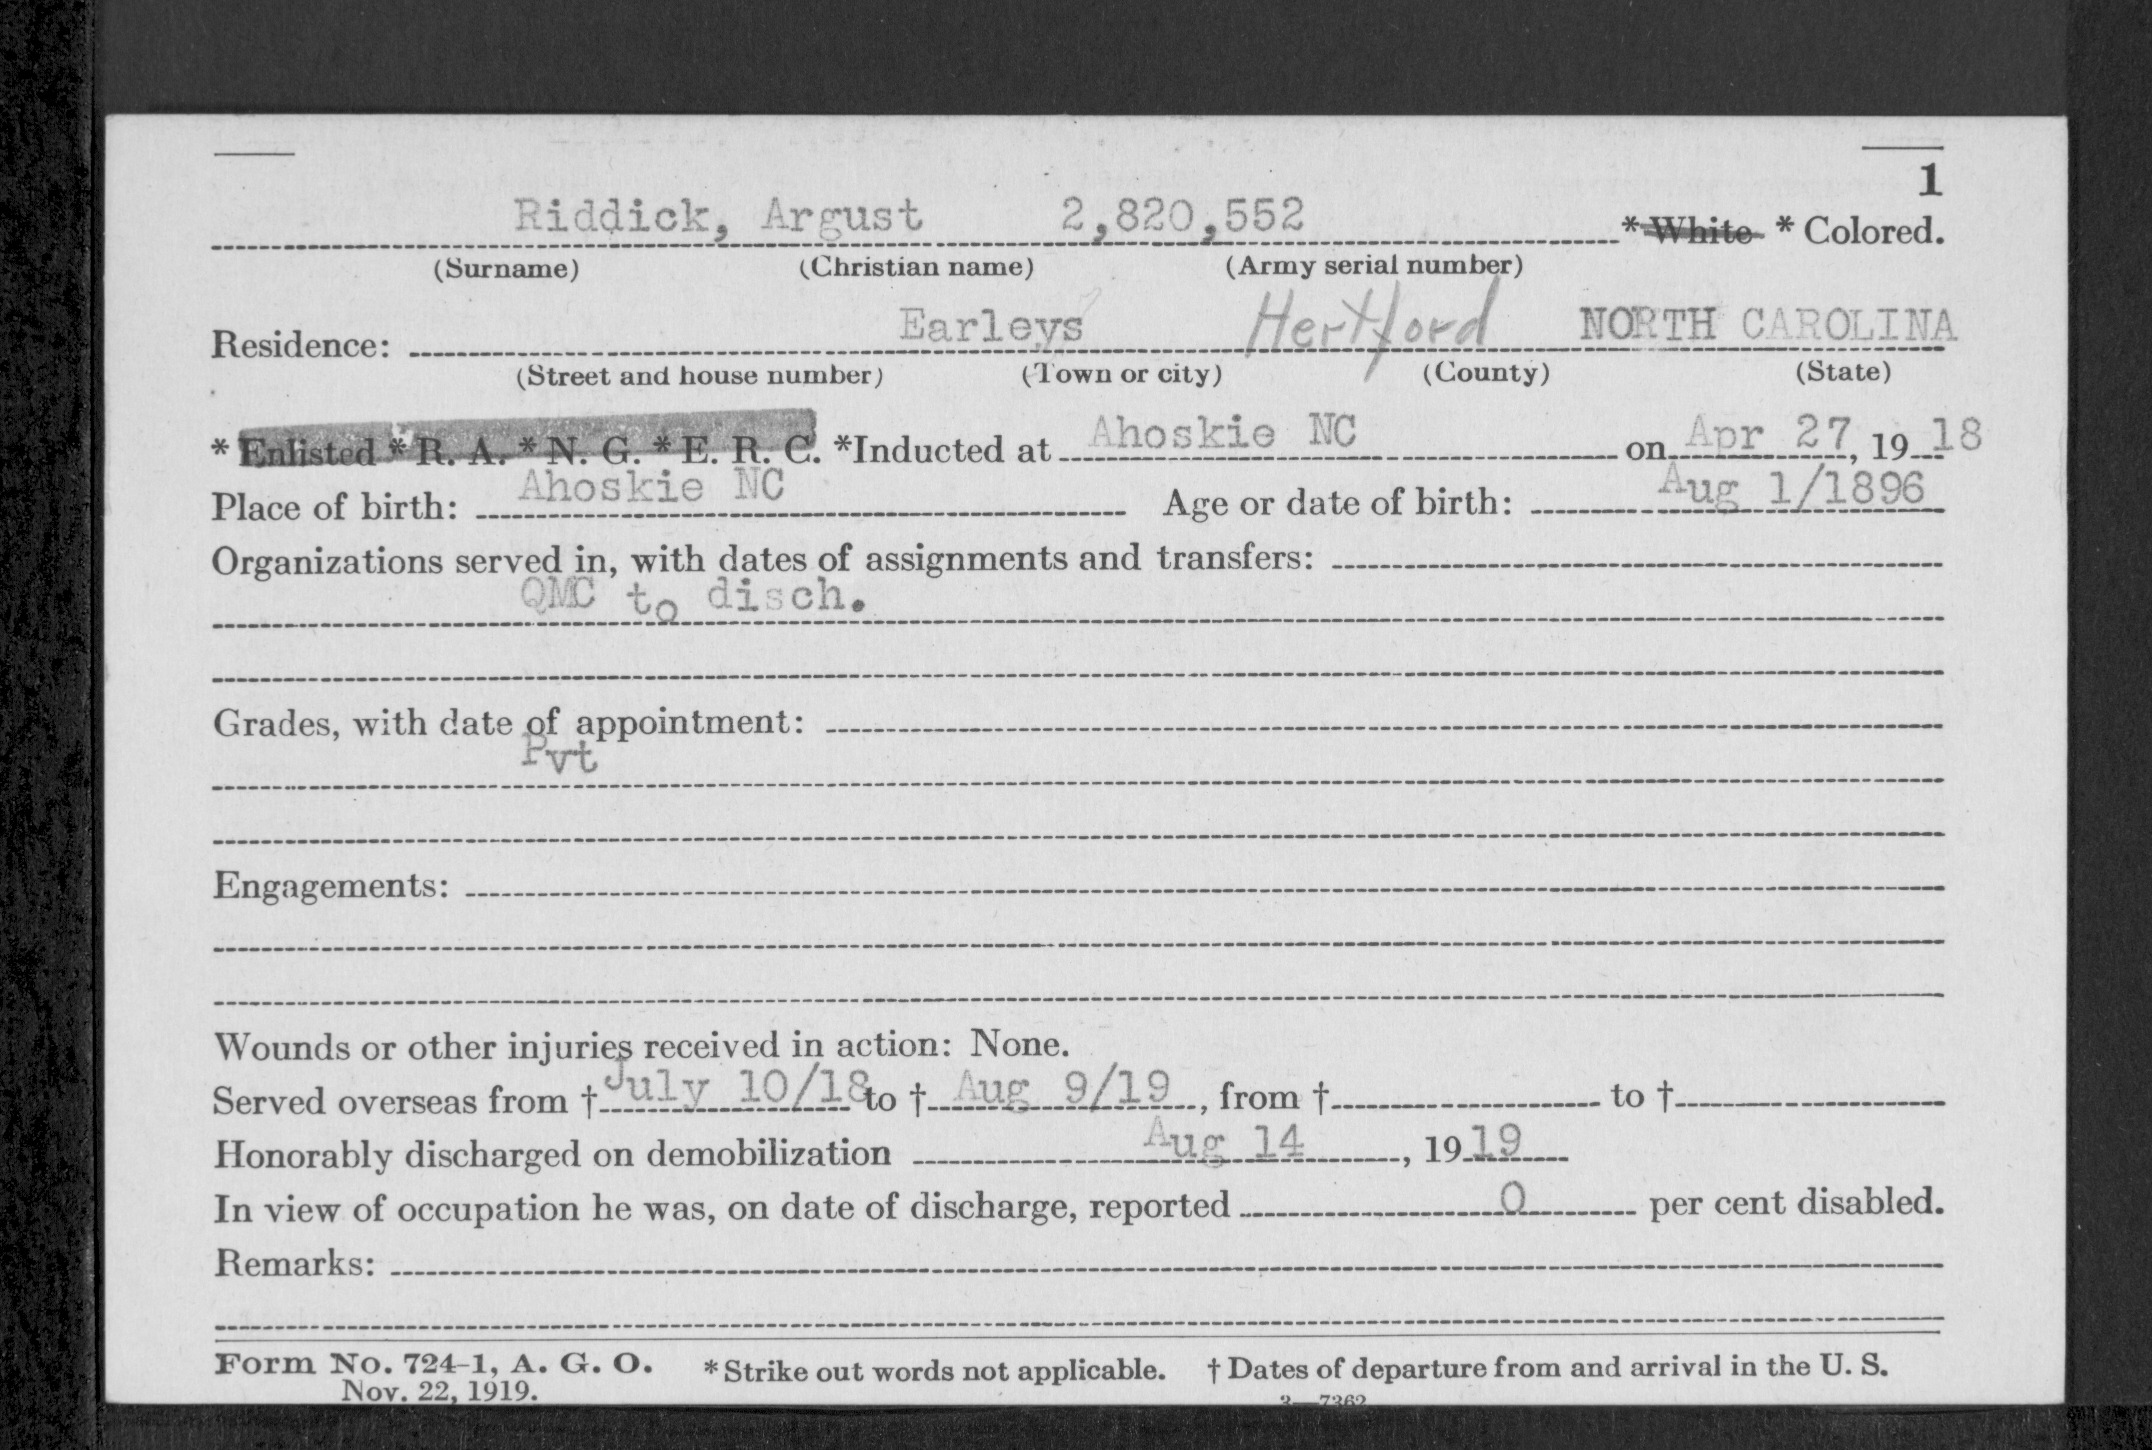 1
Riddick, Argust 2,820,552 *White *Colored.
(Surname) (Christian name) (Army serial number)
Residence: Earleys Hertford NORTH CAROLINA
(Street and house number) (Town or city) (County) (State)
*Enlisted *R. A. *N. G. *E. R. C. *Inducted at Ahoskie NC on Apr 27, 1918
Place of birth: Ahoskie NC Age or date of birth: Aug 1/1896
Organizations served in, with dates of assignments and transfers:
QMC to disch.
Grades, with date of appointment:
Pvt
Engagements:
Wounds or other injuries received in action: None.
Served overseas from † July 10/18 to † Aug 9/19, from † to †
Honorably discharged on demobilization Aug 14, 1919
In view of occupation he was, on date of discharge, reported 0 per cent disabled.
Remarks:
Form No. 724-1, A. G. O. *Strike out words not applicable. † Dates of departure from and arrival in the U. S.
Nov. 22, 1919. 3—7362